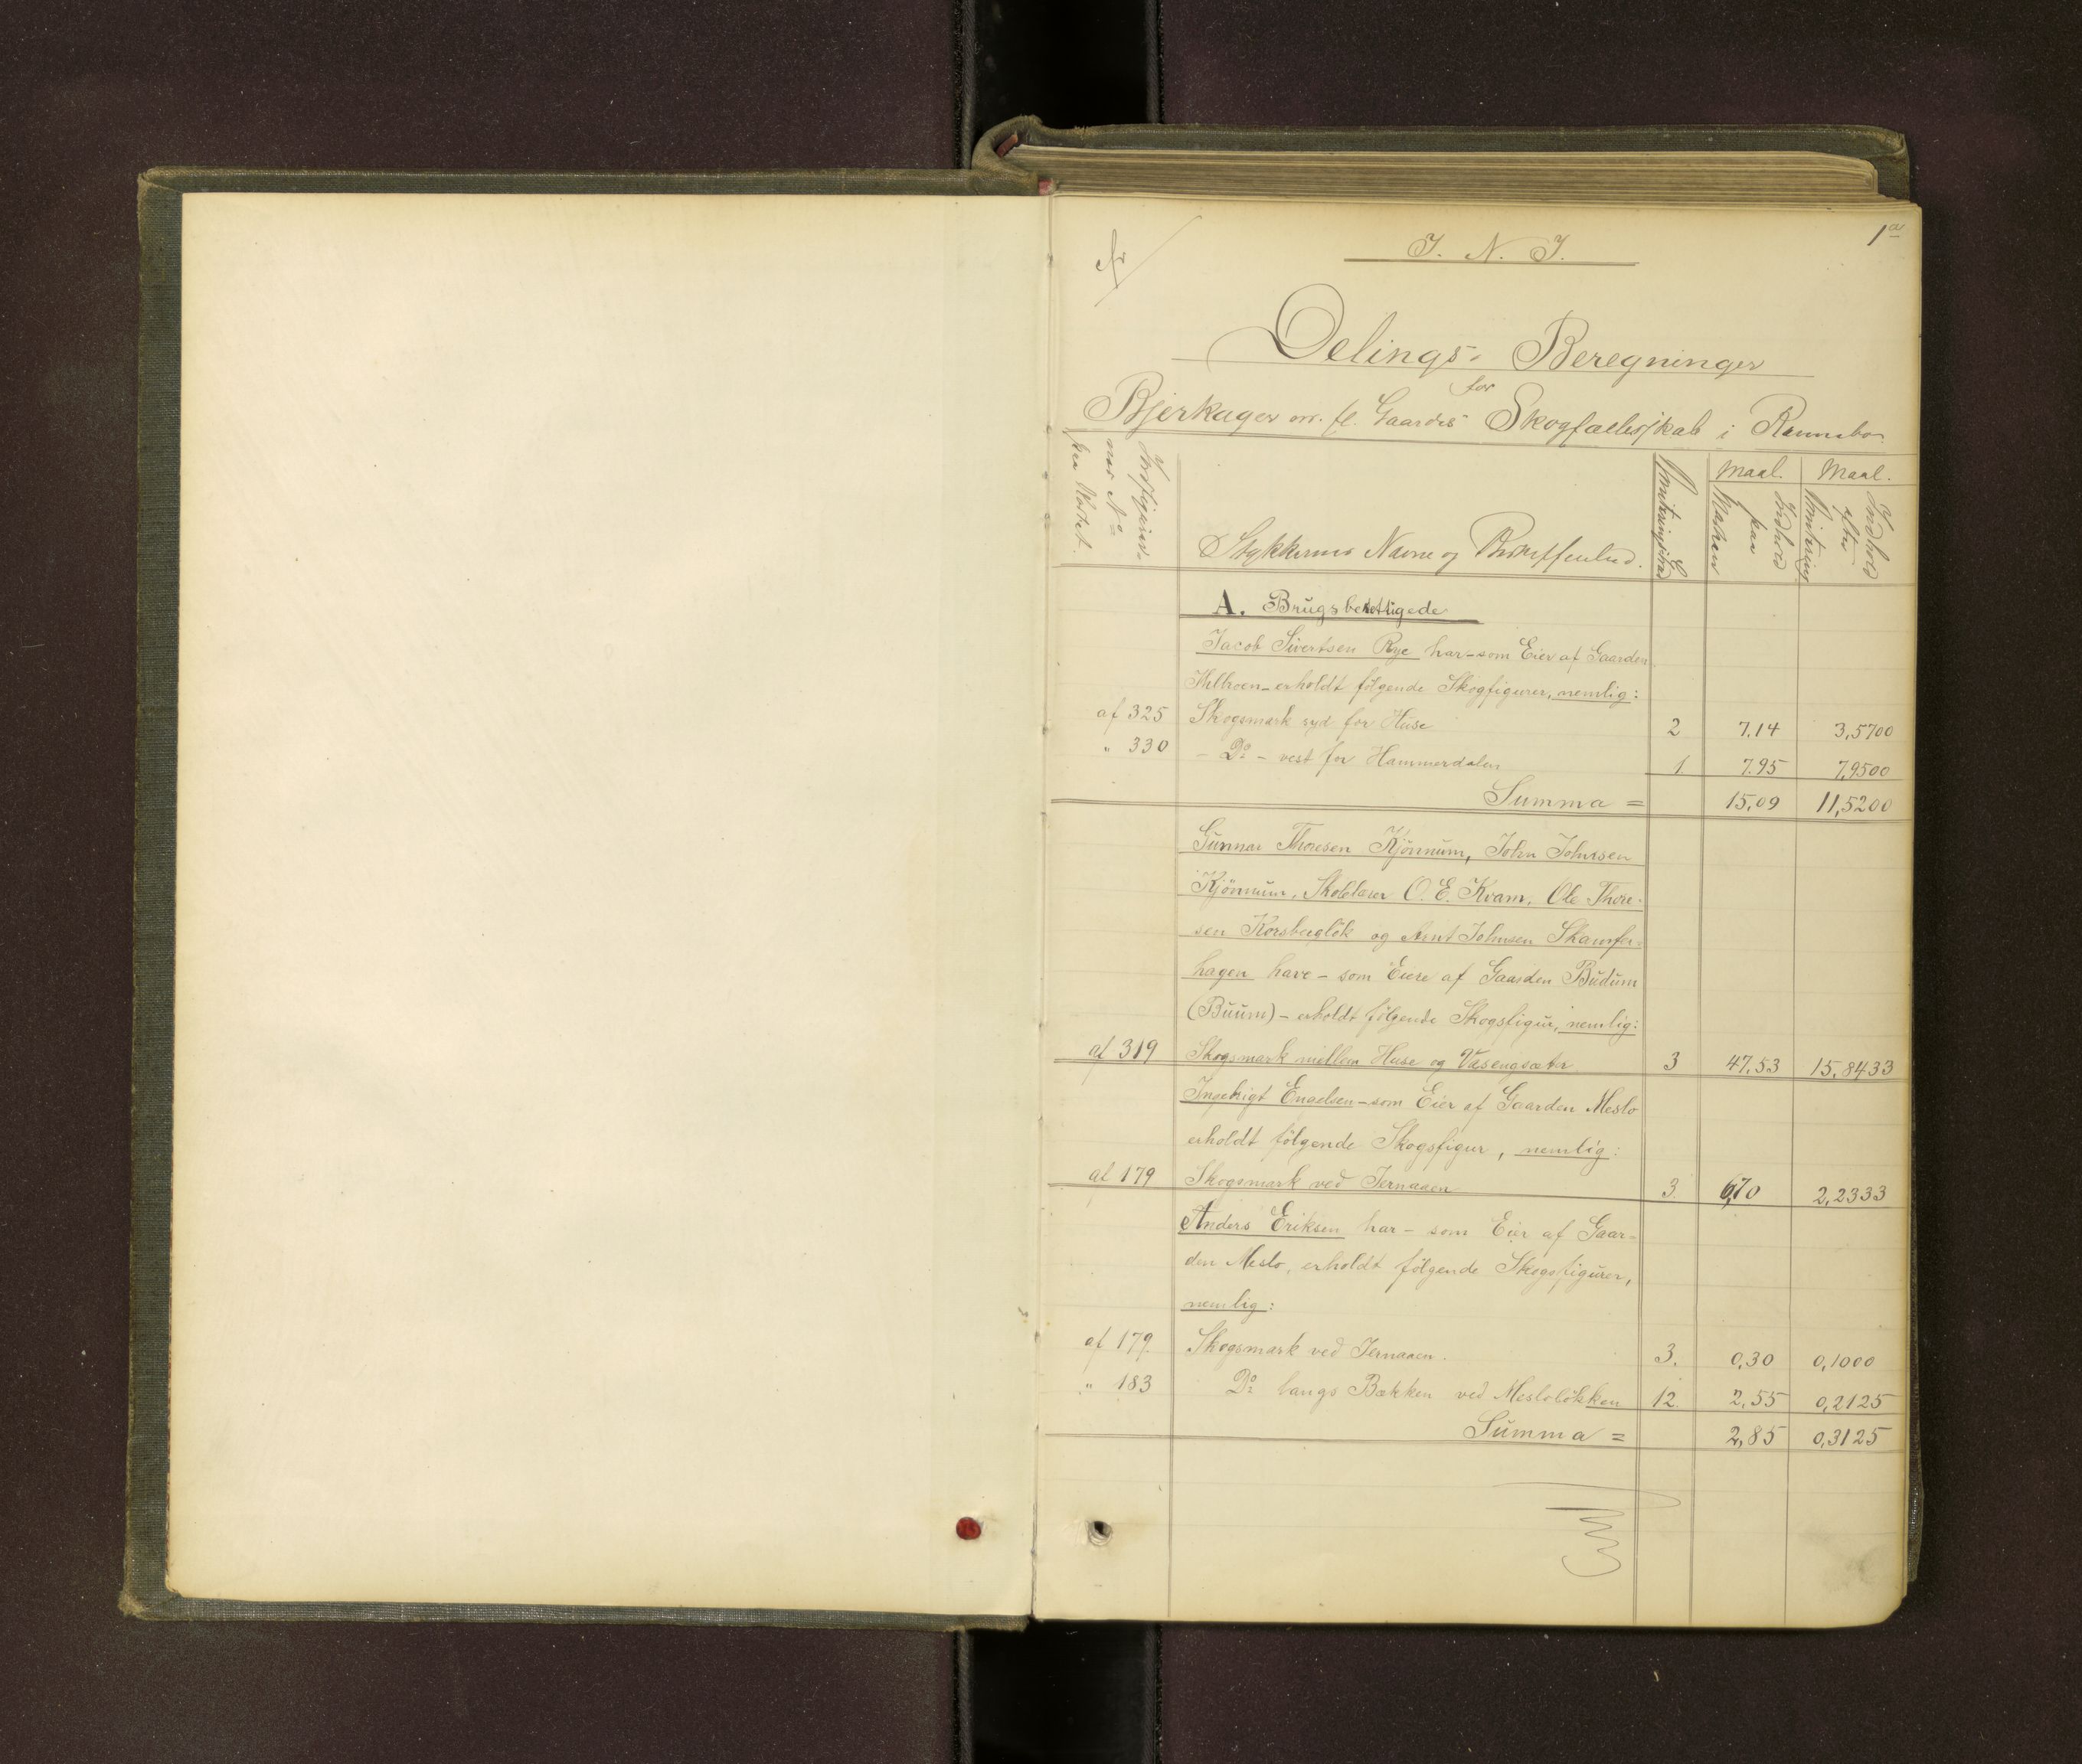 1a
I. N. I.
Delings- Beregninger
for
Bjerkager m. fl. Gaardes Skogfælledsskab i Rennebo
Skogfigurernes No paa Kartet.
Stykkernes Navne og Beskaffenhed.
Maal. Indhold paa Marken
Maal. Indhold efter
A. Brugsberettigede
Jacob Sivertsen Rye har - som Eier af Gaarden
erholdt følgende Skogfigurer, nemlig:
af 325 Skogsmark syd for Huse 2 7.14 3,5700
" 330 - Do - vest for Hammerdalen 1. 7.95 7,9500
Summa = 15,09 11,5200
Gunnar Thoresen Kjönnum, John Johnsen
Kjönnum, Skolelærer O. E. Kvam, Ole Thore-
sen Korsbergløk og Arnt Johnsen Skamfer-
hagen have - som Eiere af Gaarden Budum
(Buum) - erholdt følgende Skogsfigur, nemlig:
af 319 Skogsmark mellem Huse og Vasengsæter 3 47,53 15,8433
Ingebrigt Engelsen - som Eier af Gaarden Meslo
erholdt følgende Skogsfigur, nemlig:
af 179 Skogsmark ved Jernaaen 3. 6,70 2,2333
Anders Eriksen har - som Eier af Gaar-
den Meslo, erholdt følgende Skogsfigurer,
nemlig:
af 179. Skogsmark ved Jernaaen. 3. 0,30 0,1000
" 183 Do langs Bækken ved Mesloløkken 12. 2,55 0,2125
Summa = 2,85 0,3125